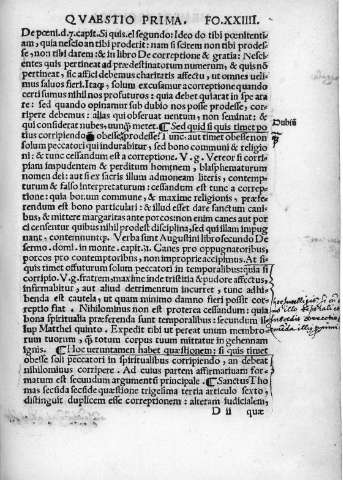 QVAESTIO PRIMA. FO.XXIIII.
De pœni.d.7.capit.Si quis.el segundo: Ideo do tibi pœnitenti
am, quia nescio an tibi proderit: nam si scirem non tibi prodes-
se, non tibi darem: & in libro De correptione & gratia: Nesci-
entes quis pertineat ad prædestinatorum numerum, & quis nõ
pertineat, sic affici debemus charitatis affectu, ut omnes ueli-
mus saluos fieri. Itaq;, solum excusamur a correptione quando
certi sumus nihil nos profuturos: quia debet qui arat in spe ara
re: sed quando opinamur sub dubio nos posse prodesse, cor-
ripere debemus: alias qui obseruat uentum, non seminat: &
qui considerat nubes, nunq̃ metet. ¶ Sed quid si quis timet po
tius corripiendo obesse prodesse? Tunc aut timet obesse non
solum peccatori qui indurabitur, sed bono communi & religio
ni: & tunc cessandum est a correptione. V.g. Vereor si corri-
piam impudentem & perditum hominem, blasphematurum
nomen dei: aut si ex sacris illum admoneam literis, contemp-
turum & falso interpretaturum: cessandum est tunc a correp-
tione: quia bonum commune, & maxime religionis, præfe-
rendum est bono particulari: & illud esset dare sanctum cani-
bus, & mittere margaritas ante porcos: non enim canes aut por
ci censentur quibus nihil prodest disciplina, sed qui illam impug
nant, contemnuntq;. Verba sunt Augustini libro secundo De
sermo. domi. in monte. capit.31. Canes pro oppugnatoribus,
porcos pro contemptoribus, non improprie accipimus. At si
quis timet offuturum solum peccatori in temporalibus: quia si
corripio. V.g. fratrem, maxime inde tristitia & pudore affectus,
infirmabitur, aut aliud detrimentum incurret, tunc adhi-
benda est cautela, ut quam minimo damno fieri possit cor-
reptio fiat. Nihilominus non est proterea cessandum: quia
bona spiritualia præferenda sunt temporalibus: secundum il-
lup Matthei quinto. Expedit tibi ut pereat unum membro
rum tuorum, q̃ totum corpus tuum mittatur in gehennam
ignis. ¶ Hoc ueruntamen habet quæstionem: si quis timet
obesse soli peccatori in spiritualibus corripiendo, an debeat
nihilominus corripere. Ad cuius partem affirmatiuam for-
matum est secundum argumentũ principale. ¶ Sanctus Tho
mas secũda secũdæ quæstione trigesima tertia articulo sexto,
distinguit duplicem esse correptionem: alteram iudicialem,
D ii quæ
Dubiũ